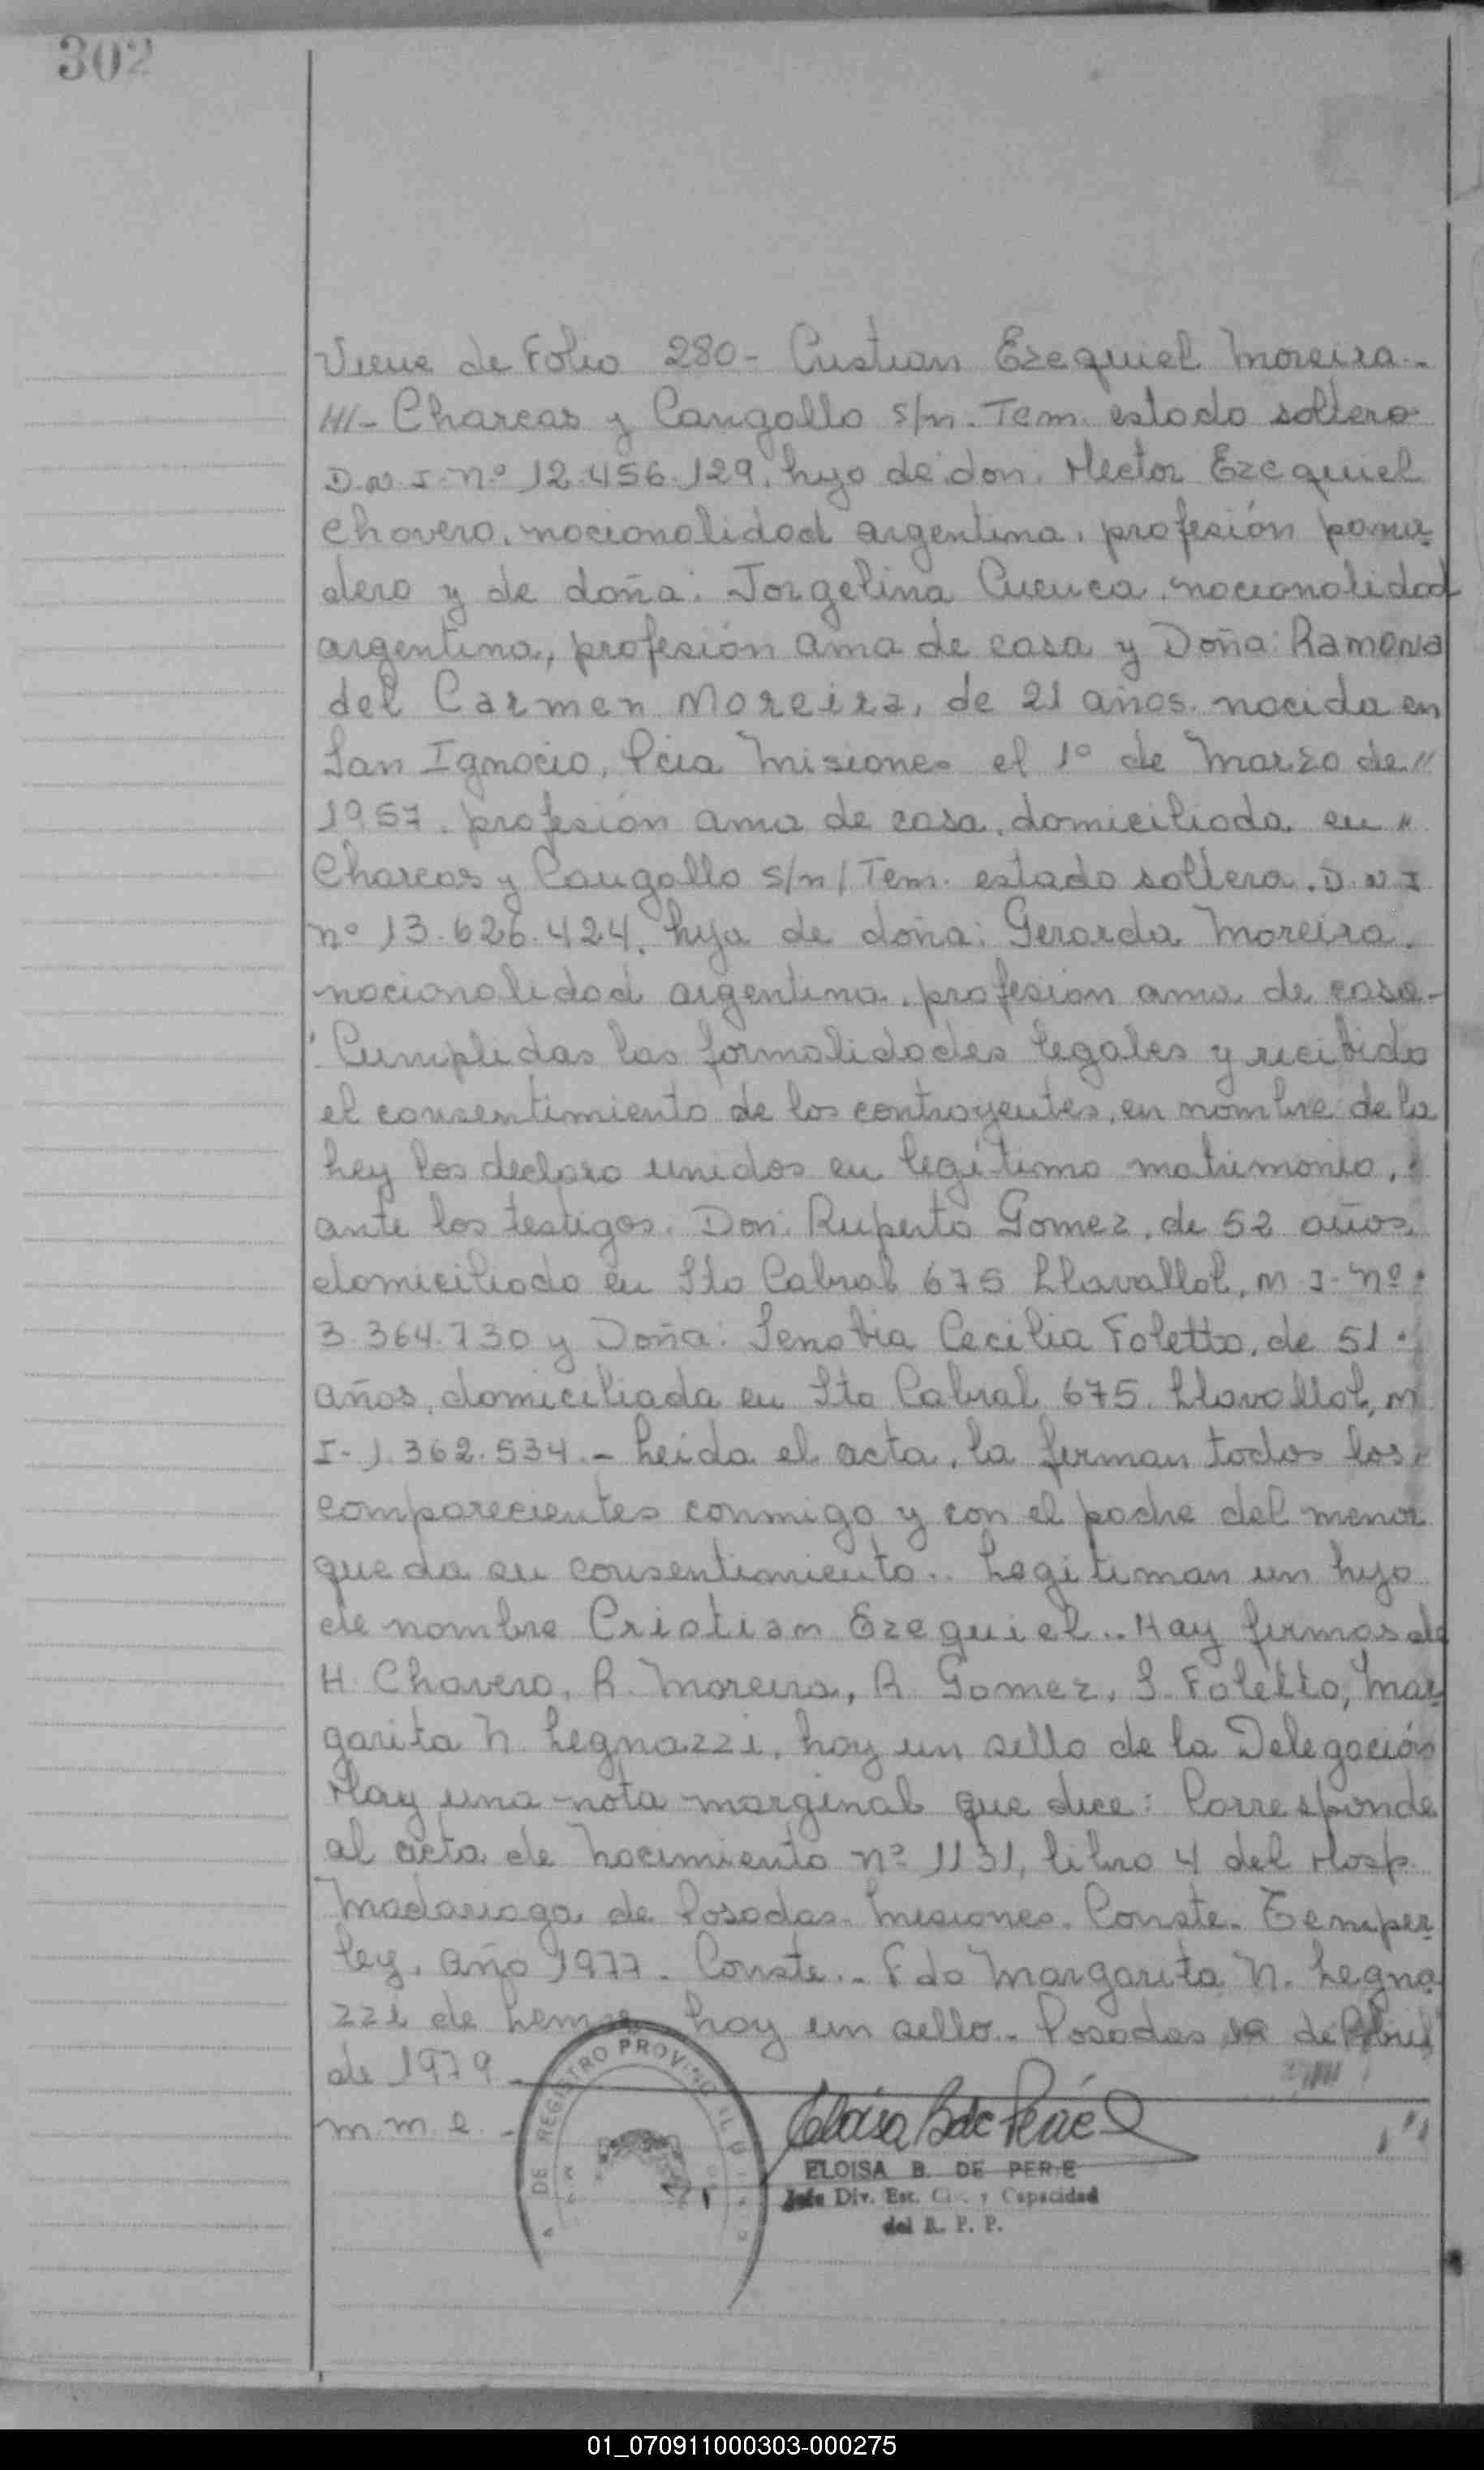 302
Viene de Folio 280- Cristian Ezequiel Moreira.-
///- Charcas y Cangallo s/n. Tem. estado soltero
D.N.I. Nº 12.456.129, hijo de don: Hector Ezequiel
Chavero, nacionalidad argentina, profesión pana
dero y de doña: Jorgelina Cuenca, nacionalidad
argentina, profesión ama de casa y Doña: Ramona
del Carmen Moreira, de 21 años. nacida en
San Ignacio, Pcia Misiones el 1º de Marzo de //
1957. profesión ama de casa, domiciliada en "
Charcas y Cangallo s/n / Tem. estado soltera. D.N.I
nº 13.626.424, hija de doña: Gerarda Moreira.
nacionalidad argentina, profesión ama de casa.-
Cumplidas las formalidades legales y recibido
el consentimiento de los contrayentes, en nombre de la
Ley los declaro unidos en legítimo matrimonio,
ante los testigos. Don: Ruperto Gomez, de 52 años,
domiciliado en Sto Cabral 675 Llavallol, M I- Nº
3.364.730 y Doña: Senobia Cecilia Foletto, de 51
años, domiciliada en Sto Cabral 675. Llavallol, M
I- 1.362.534.- Leida el acta, la firman todos los
comparecientes conmigo y con el padre del menor
que da su consentimiento.. Legitiman un hijo
de nombre Cristian Ezequiel.. Hay firmas de
H. Chavero, R. Moreira, R. Gomez, S. Foletto, Mar
garita N. Legnazzi, hay un sello de la Delegación
Hay una nota marginal que dice: Corresponde
al acta de Nacimiento nº 1131, libro 4 del Hosp.
Madariaga de Posadas. Misiones. Conste. Temper
ley. Año 1977. Conste.. Fdo Margarita N. Legna
zzi de hay un sello.. Posadas de Abril
de 1979.
m.m.e.-
DE REGISTRO PROVINCIAL
Eloisa B de Peré
ELOISA B. DE PERE
Jefe Div. Est. Civ. y Capacidad
del R. P. P.
01_070911000303-000275